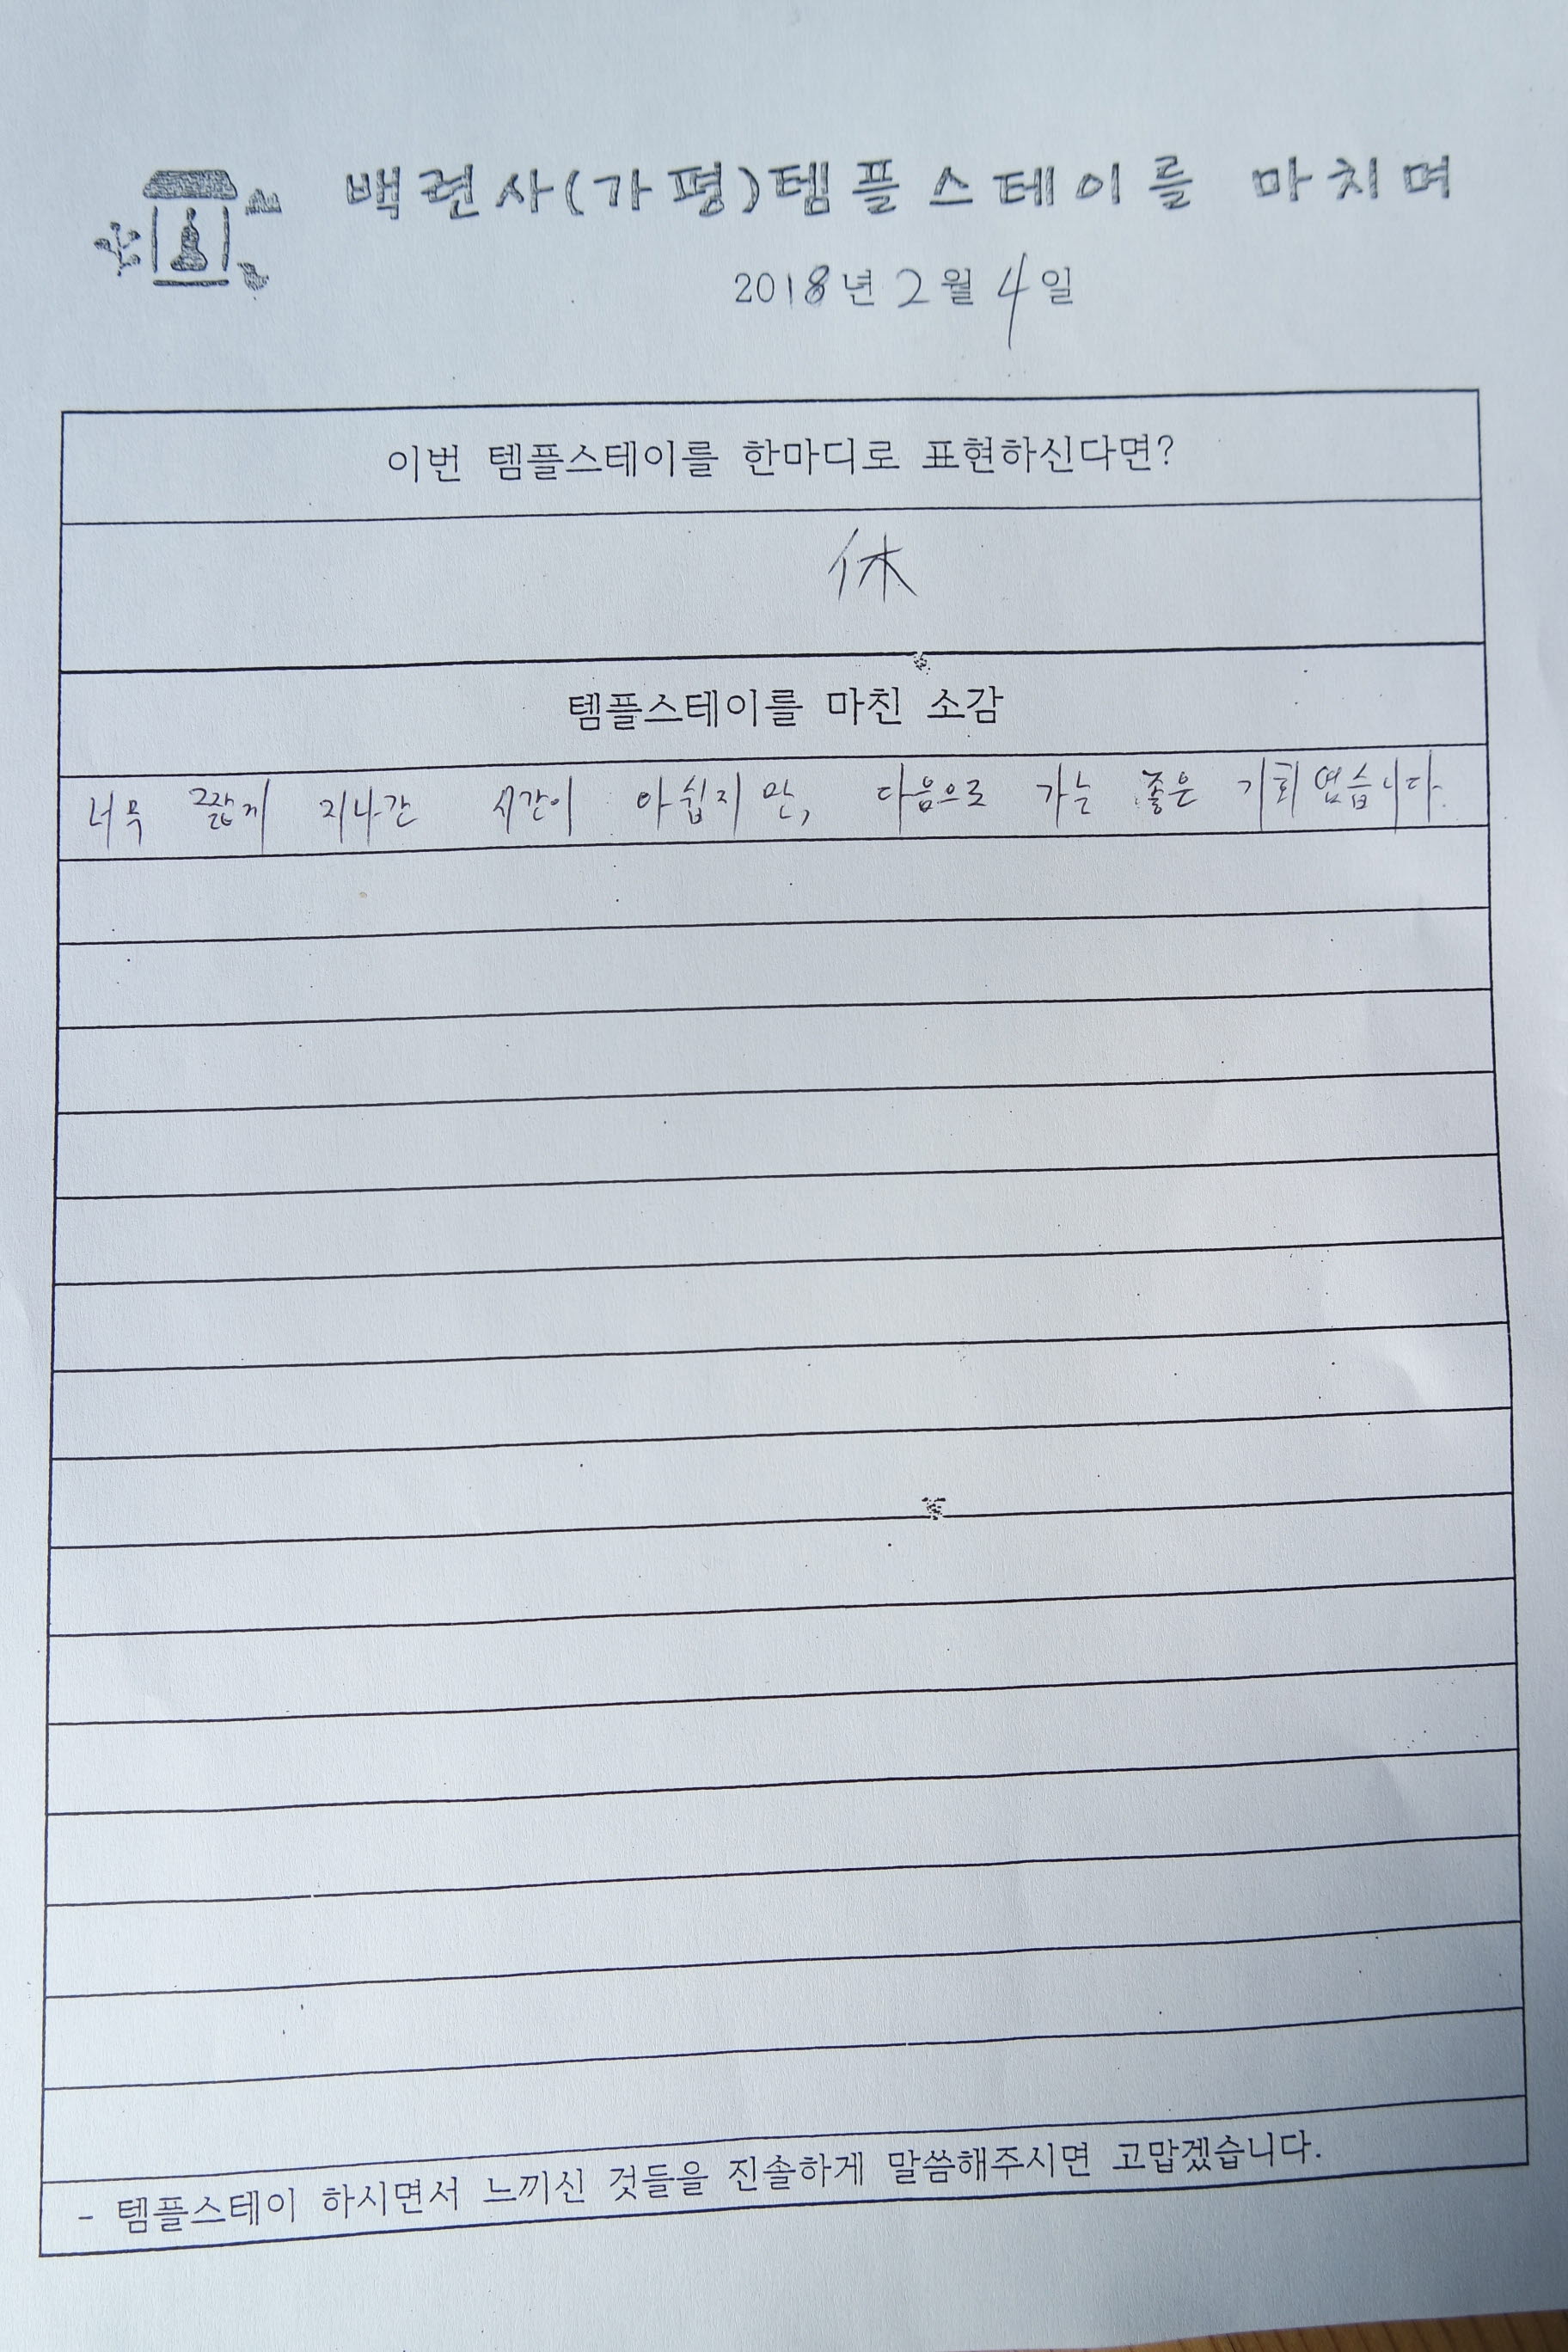 백련사(가평)템플스테이를 마치며
2018년 2월 4일
이번 템플스테이를 한마디로 표현하신다면?
休
템플스테이를 마친 소감
너무 짧게 지나간 시간이 아쉽지만, 다음으로 가는 좋은 기회였습니다.
- 템플스테이 하시면서 느끼신 것들을 진솔하게 말씀해주시면 고맙겠습니다.